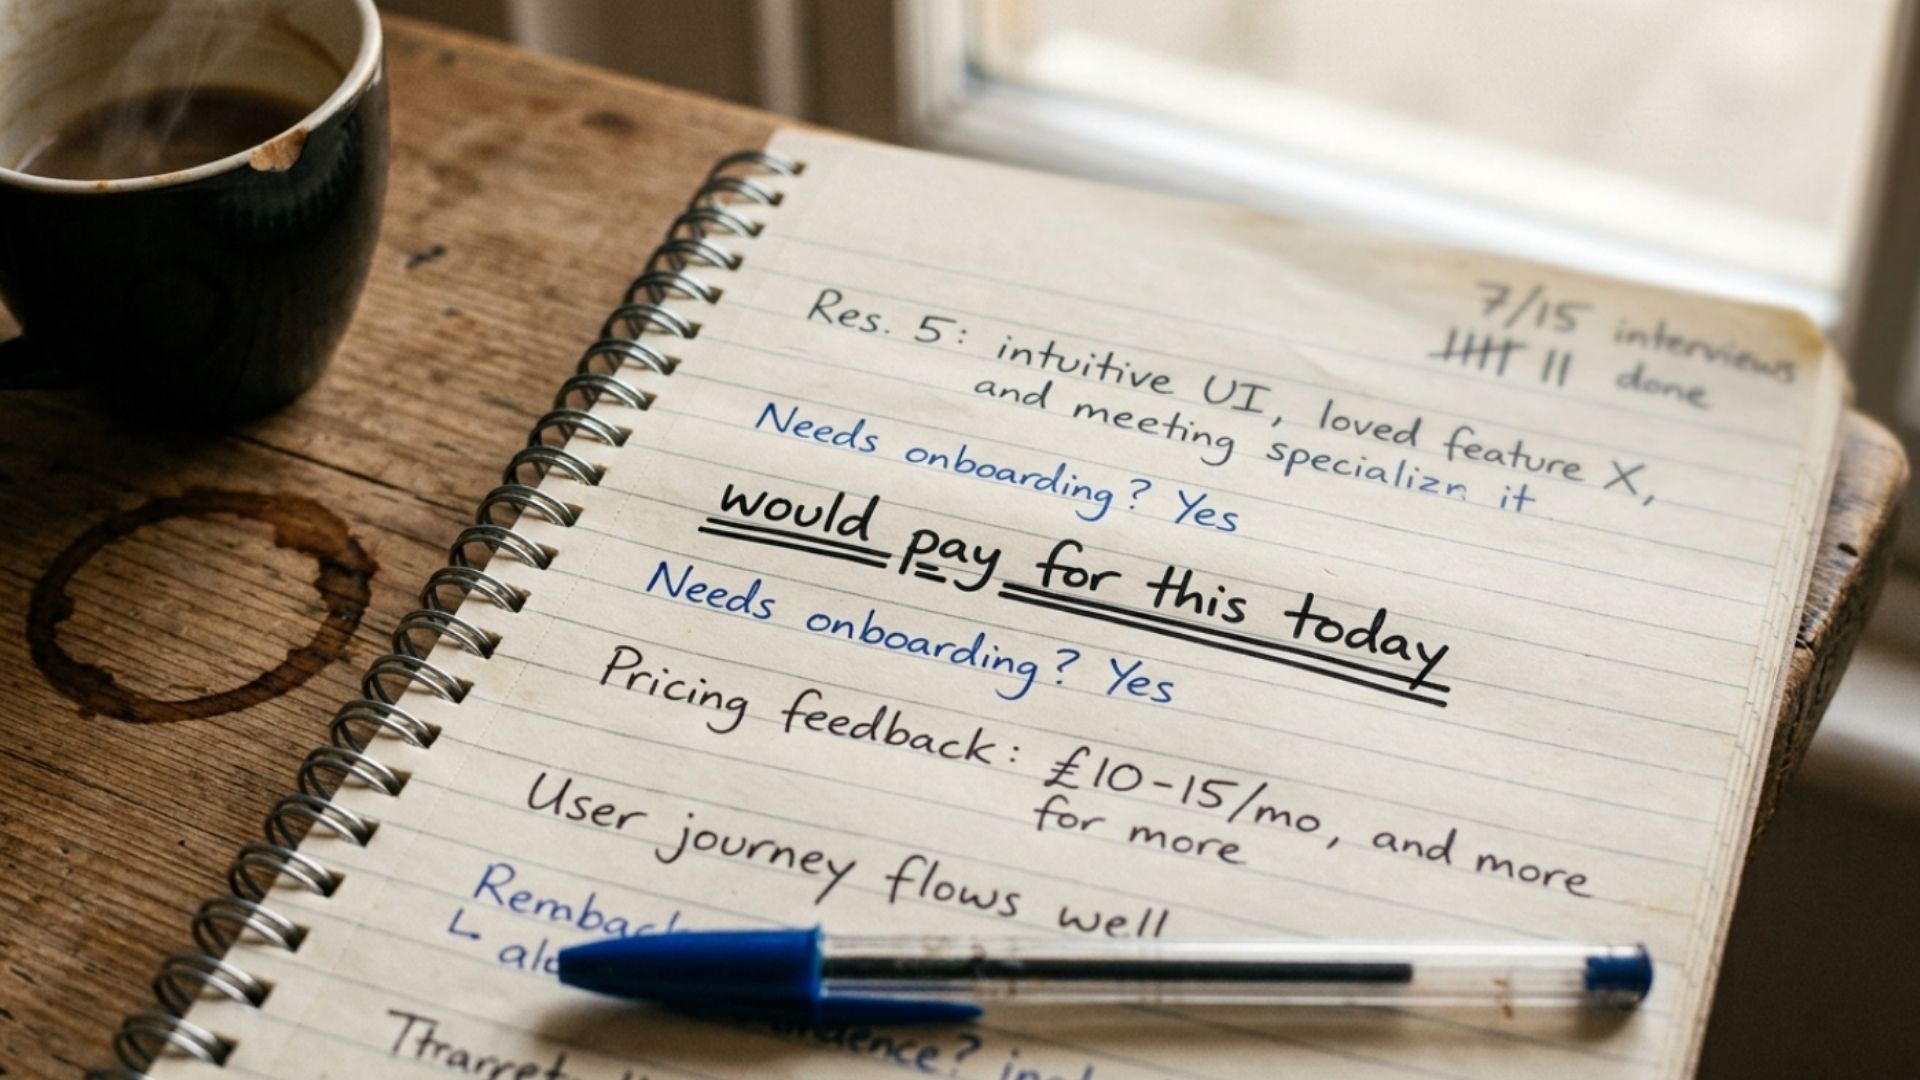 7/15 interviews
done
Res. 5: intuitive UI, loved feature X,
and meeting it
Needs onboarding? Yes
would pay for this today
Needs onboarding? Yes
Pricing feedback: £10-15/mo, and more
for more
User journey flows well